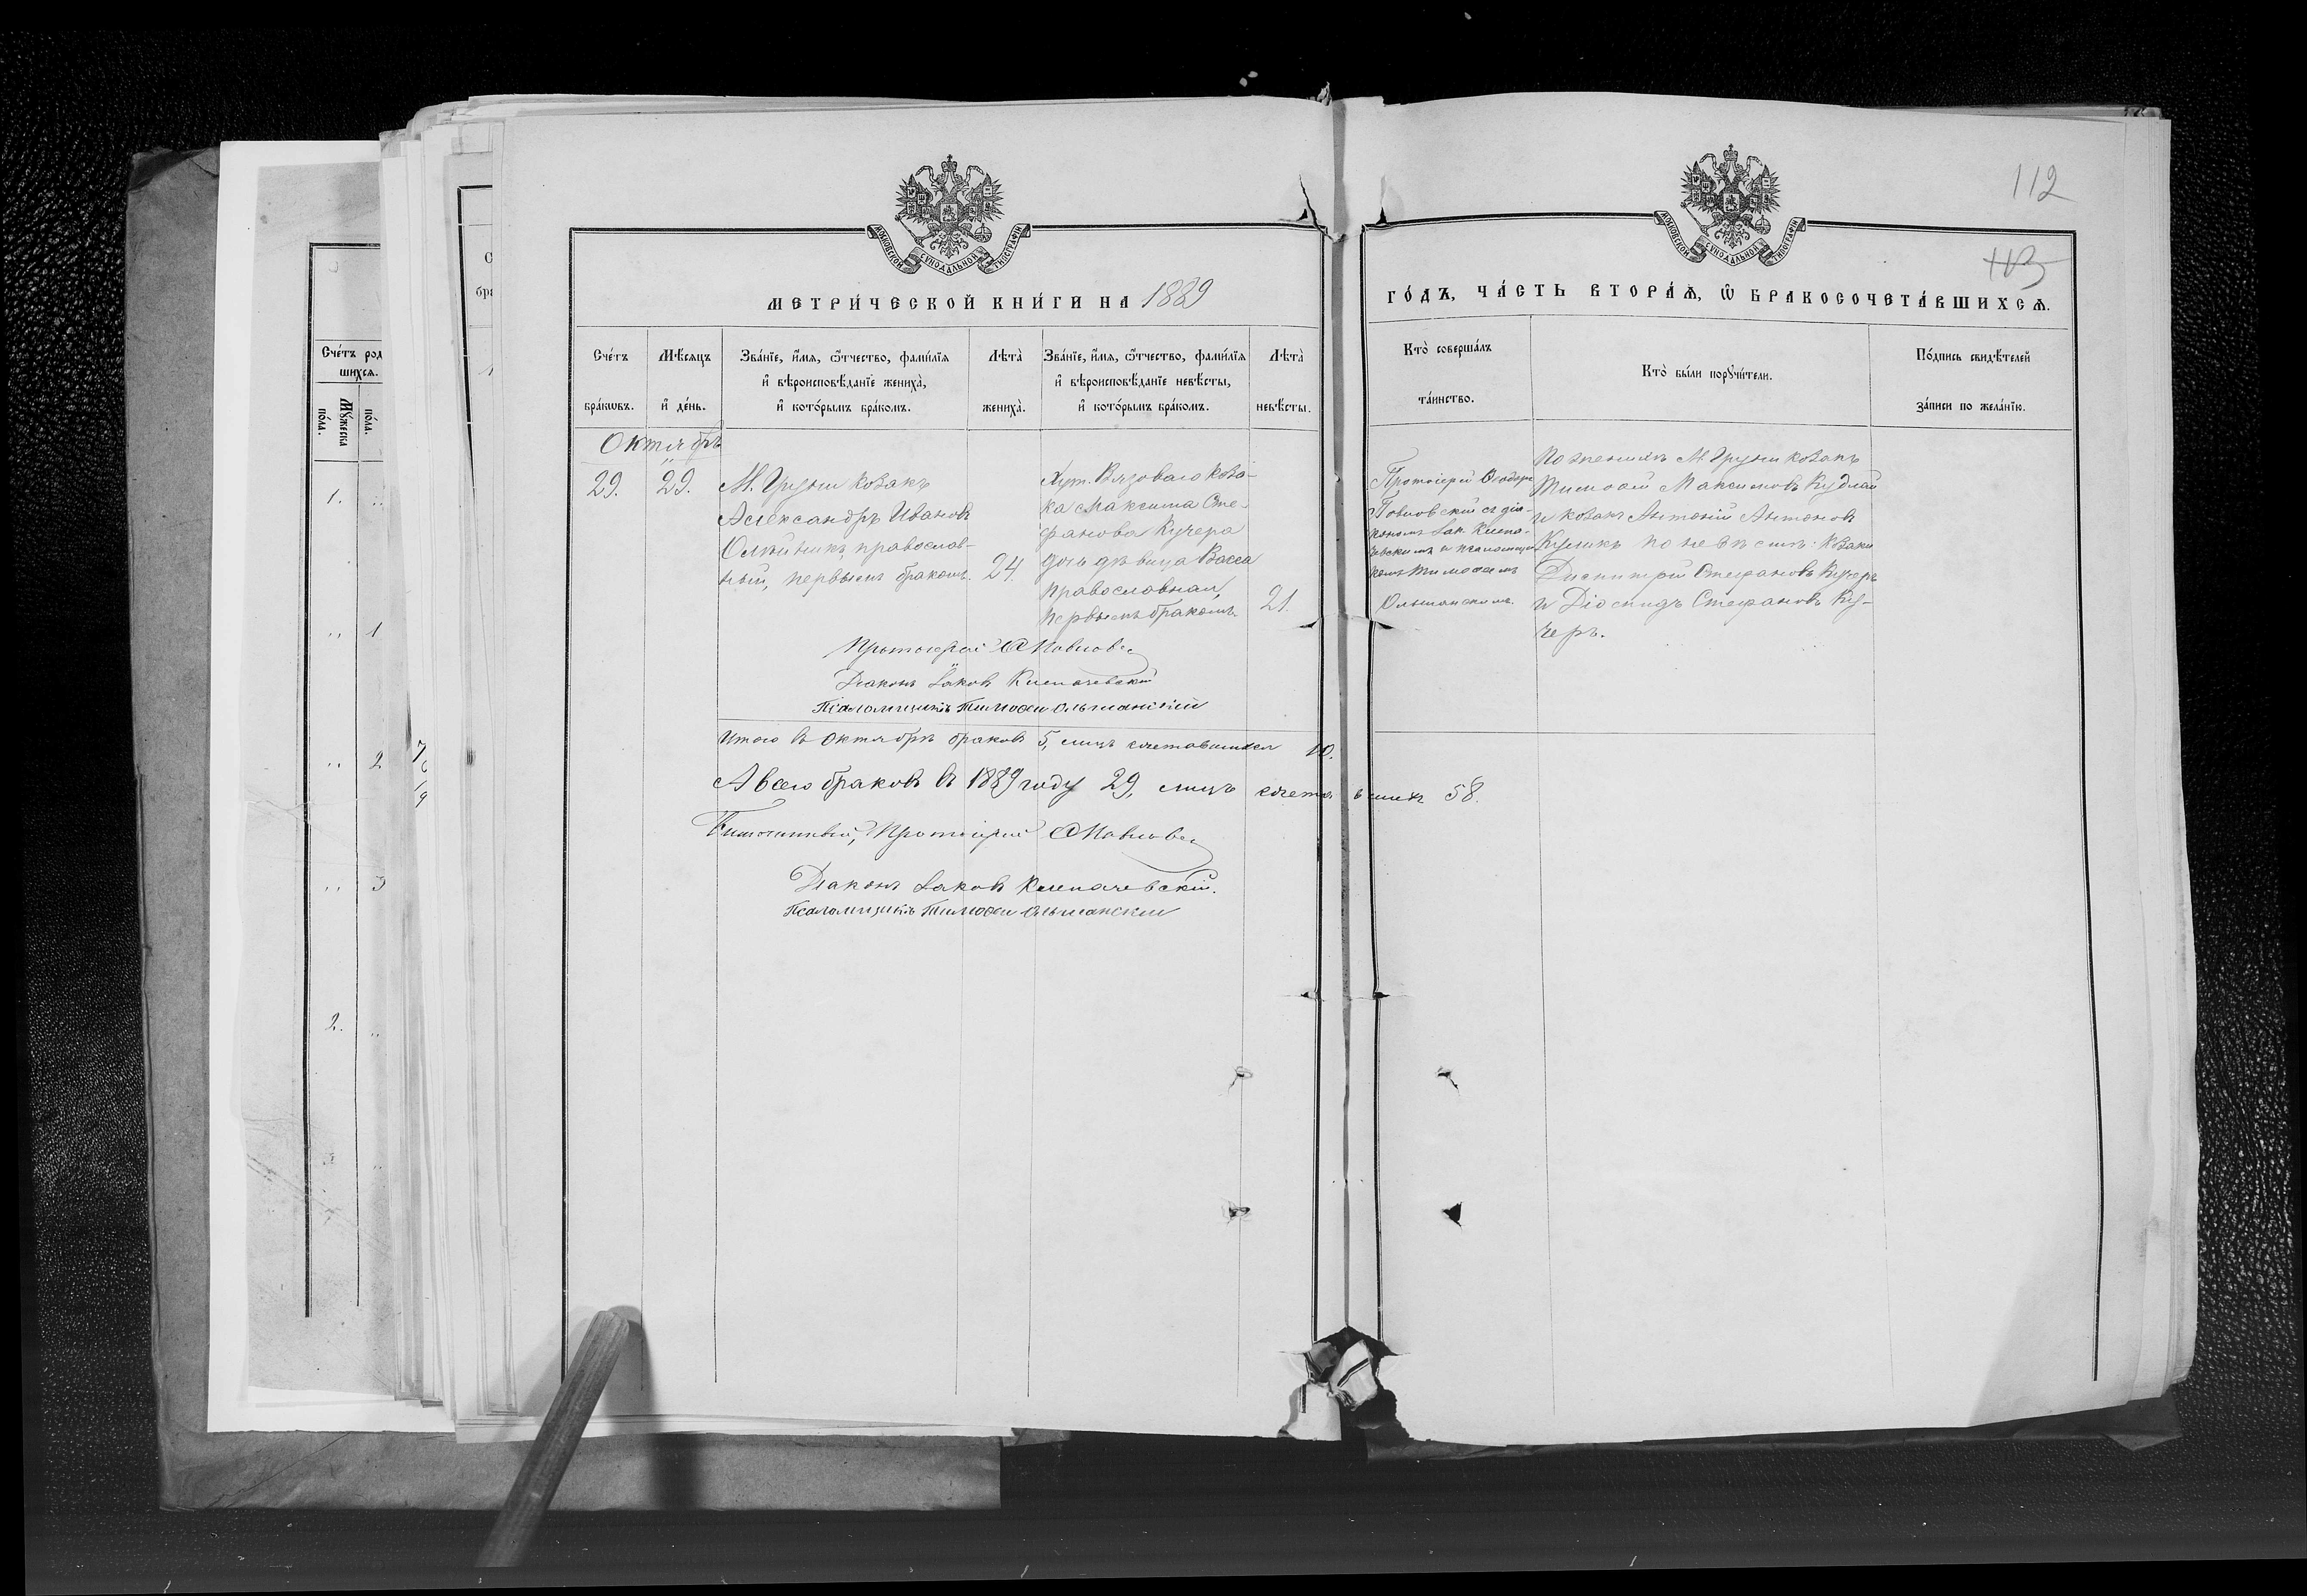 112
МОСКОВСКОЙ СѴНОДАЛЬНОЙ ТИПОГРАФІИ
МОСКОВСКОЙ СѴНОДАЛЬНОЙ ТИПОГРАФІИ
МЕТРИ́ЧЕСКОЙ КНИ́ГИ НА 1889
ГО́ДЪ, ЧА́СТЬ ВТОРА́Ѧ, Ѽ БРАКОСОЧЕТА́ВШИХСѦ.
Сче́тъ бра́кѡвъ.
Мѣ́сяцъ и҆ де́нь.
Зва́нїе, и҆́мѧ, ѻ҆́тчество, фами́лїѧ и҆ вѣроисповѣ́данїе жениха̀, и҆ кото́рымъ бра́комъ.
Лѣта̀ жениха̀.
Зва́нїе, и҆́мѧ, ѻ҆́тчество, фами́лїѧ и҆ вѣроисповѣ́данїе невѣ́сты, и҆ кото́рымъ бра́комъ.
Лѣта̀ невѣ́сты.
Кто̀ соверша́лъ та́инство.
Кто̀ бы́ли порꙋчи́тели.
По́дпись свидѣ́телей за́писи по жела́нїю.
Октябрь
29.
29.
М. Груни козакъ
Александръ Ивановъ
Олѣйникъ, православ-
ный, первымъ бракомъ.
24.
Хут. Вязоваго коза-
ка Максима Сте-
фанова Кучера
дочь дѣвица Васса
православная,
первымъ бракомъ.
21.
Протоіерей Ѳеодоръ
Павловскій съ діа-
кономъ Іак. Клепа-
чевскимъ и псаломщи-
комъ Тимоѳеемъ
Ольшанскимъ.
По женихѣ М. Груни козакъ
Тимоѳей Максимовъ Кудлай
и козакъ Антоній Антоновъ
Куликъ по невѣстѣ: козаки
Димитрій Стефановъ Кучеръ
и Діомидъ Стефановъ Ку-
черъ.
Протоіерей Ѳ Павловс
Діаконъ Іаковъ Клепачевскій
Псаломщикъ Тимоѳей Ольшанскій
Итого въ Октябрѣ браковъ 5, лицъ сочетавшихся 10.
А всего браковъ въ 1889 году 29, лицъ сочетавшихъ 58.
Благочинный, Протоіерей Ѳ Павловс
Діаконъ Іаковъ Клепачевскій.
Псаломщикъ Тимоѳей Ольшанскій
Сче́тъ род
шихсѧ.
Мꙋ́жеска по́ла.
по́ла.
1.
1
2
3
2.